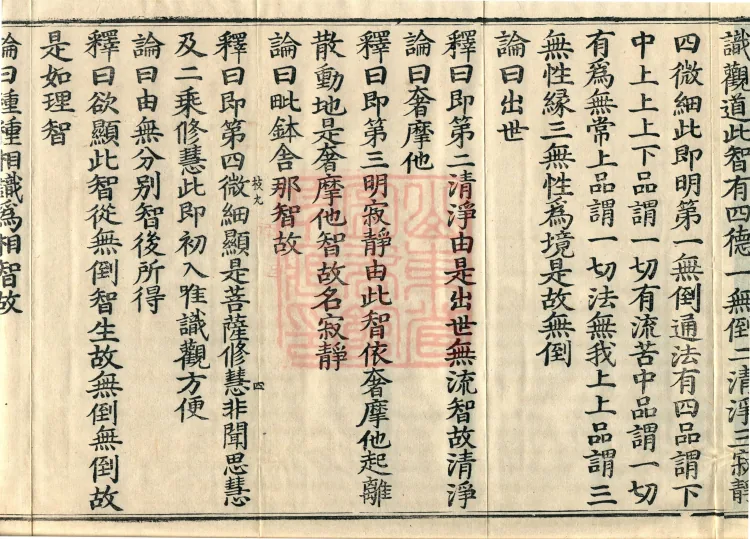 識觀道此智有四德一無倒二清淨三寂靜
四微細此即明第一無倒通法有四品謂下
中上上上下品謂一切有流苦中品謂一切
有爲無常上品謂一切法無我上上品謂三
無性緣三無性爲境是故無倒
論曰出世
釋曰即第二清淨由是出世無流智故清淨
論曰奢摩他
釋曰即第三明寂靜由此智依奢摩他起離
散動地是奢摩他智故名寂靜
論曰毗鉢舍那智故
釋曰即第四微細顯是菩薩修慧非聞思慧
及二乘修慧此即初入唯識觀方便
論曰由無分别智後所得
釋曰欲顯此智從無倒智生故無倒無倒故
是如理智
論曰種種相識爲相智故